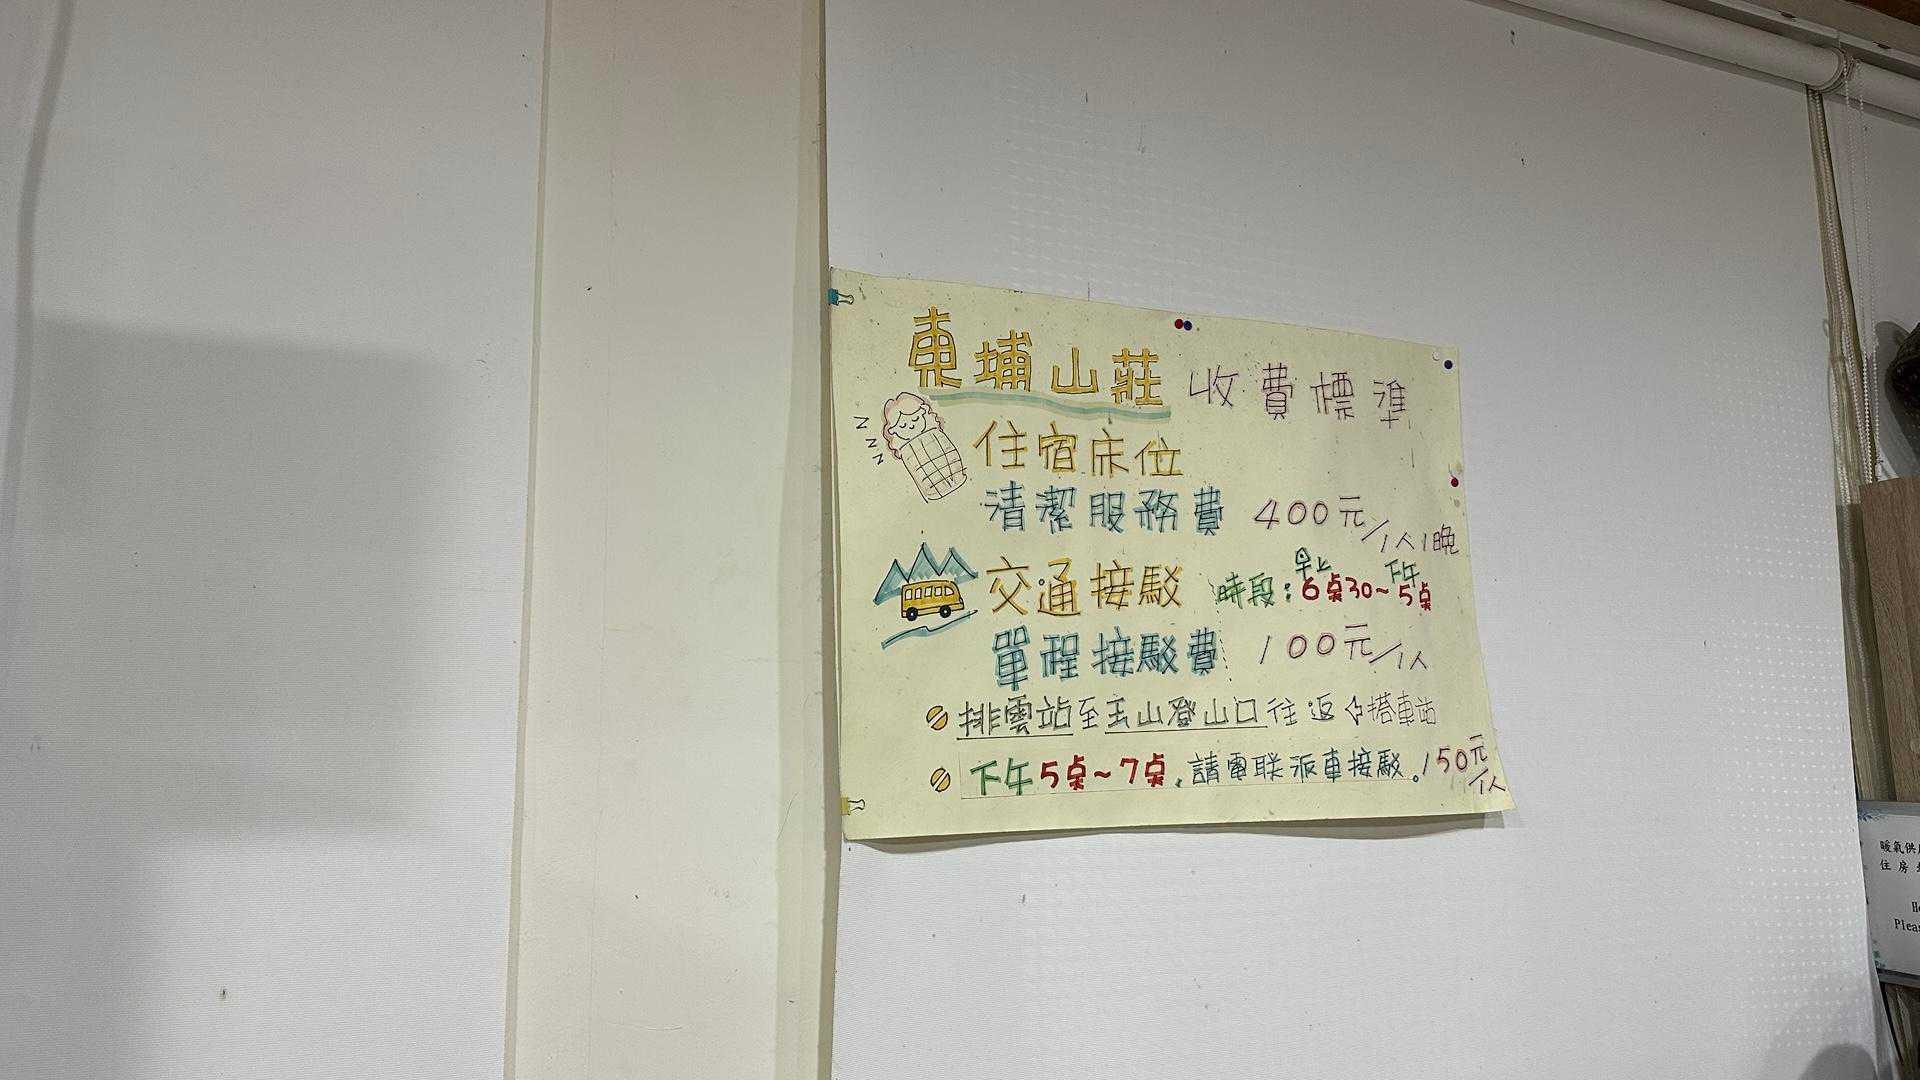 東埔山莊 收費標準
z z z
住宿床位
清潔服務費 400元/1人1晚
交通接駁 時段:早上6桌30~下午5桌
單程接駁費 100元/1人
排雲站至玉山登山口往返 搭車站
下午5桌~7桌,請電联派車接駁。150元/人
暖氣供
住房
Plea